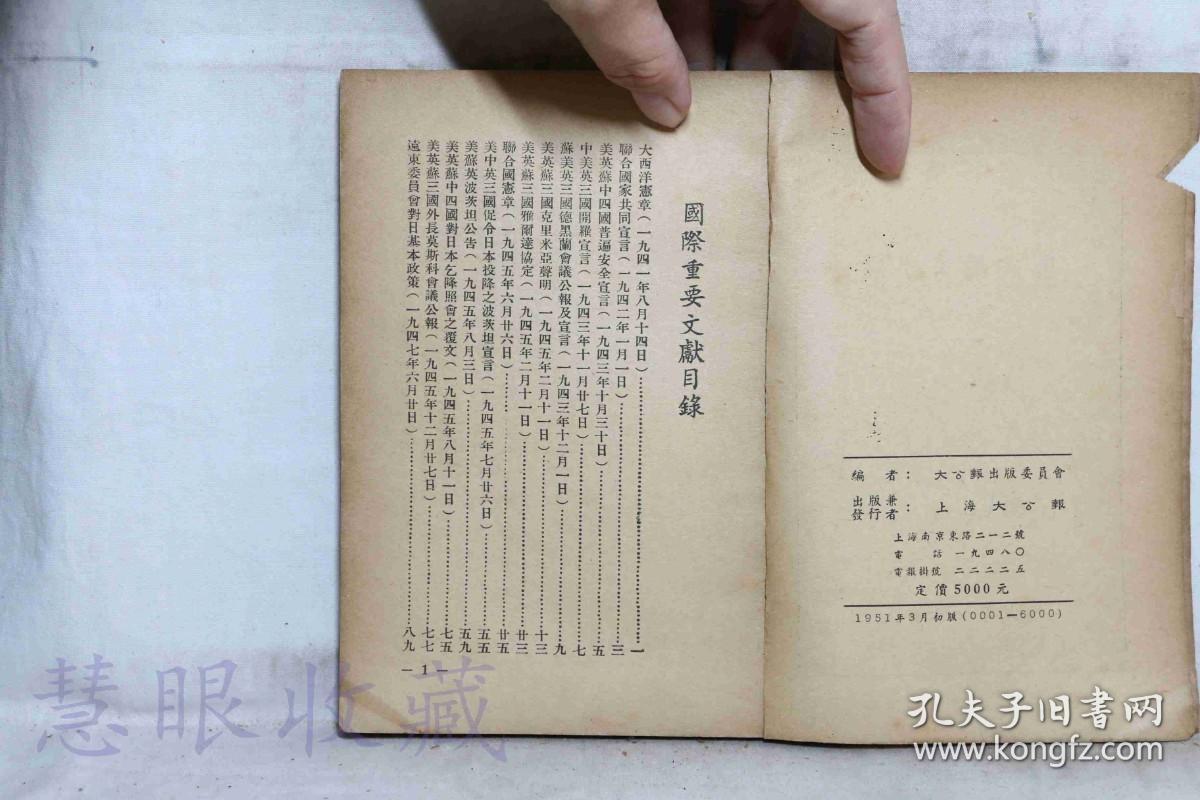 編者：大公報出版委員會
出版兼發行者：上海大公報
上海南京東路二一二號
電話 一九四八〇
電報掛號 二二二二五
定價5000元
1951年3月初版(0001—6000)
國際重要文獻目錄
大西洋憲章（一九四一年八月十四日）……一
聯合國家共同宣言（一九四二年一月一日）……三
美英蘇中四國普遍安全宣言（一九四三年十月三十日）……五
中美英三國開羅宣言（一九四三年十一月廿七日）……七
蘇美英三國德黑蘭會議公報及宣言（一九四三年十二月一日）……九
美英蘇三國克里米亞聲明（一九四五年二月十一日）……十三
美英蘇三國雅爾達協定（一九四五年二月十一日）……廿三
聯合國憲章（一九四五年六月廿六日）……廿五
美中英三國促令日本投降之波茨坦宣言（一九四五年七月廿六日）……五五
美蘇英波茨坦公告（一九四五年八月三日）……五九
美英蘇中四國對日本乞降照會之覆文（一九四五年八月十一日）……七五
美英蘇三國外長莫斯科會議公報（一九四五年十二月廿七日）……七七
遠東委員會對日基本政策（一九四七年六月廿日）……八九
— 1 —
慧眼收藏
孔夫子旧书网
www.kongfz.com